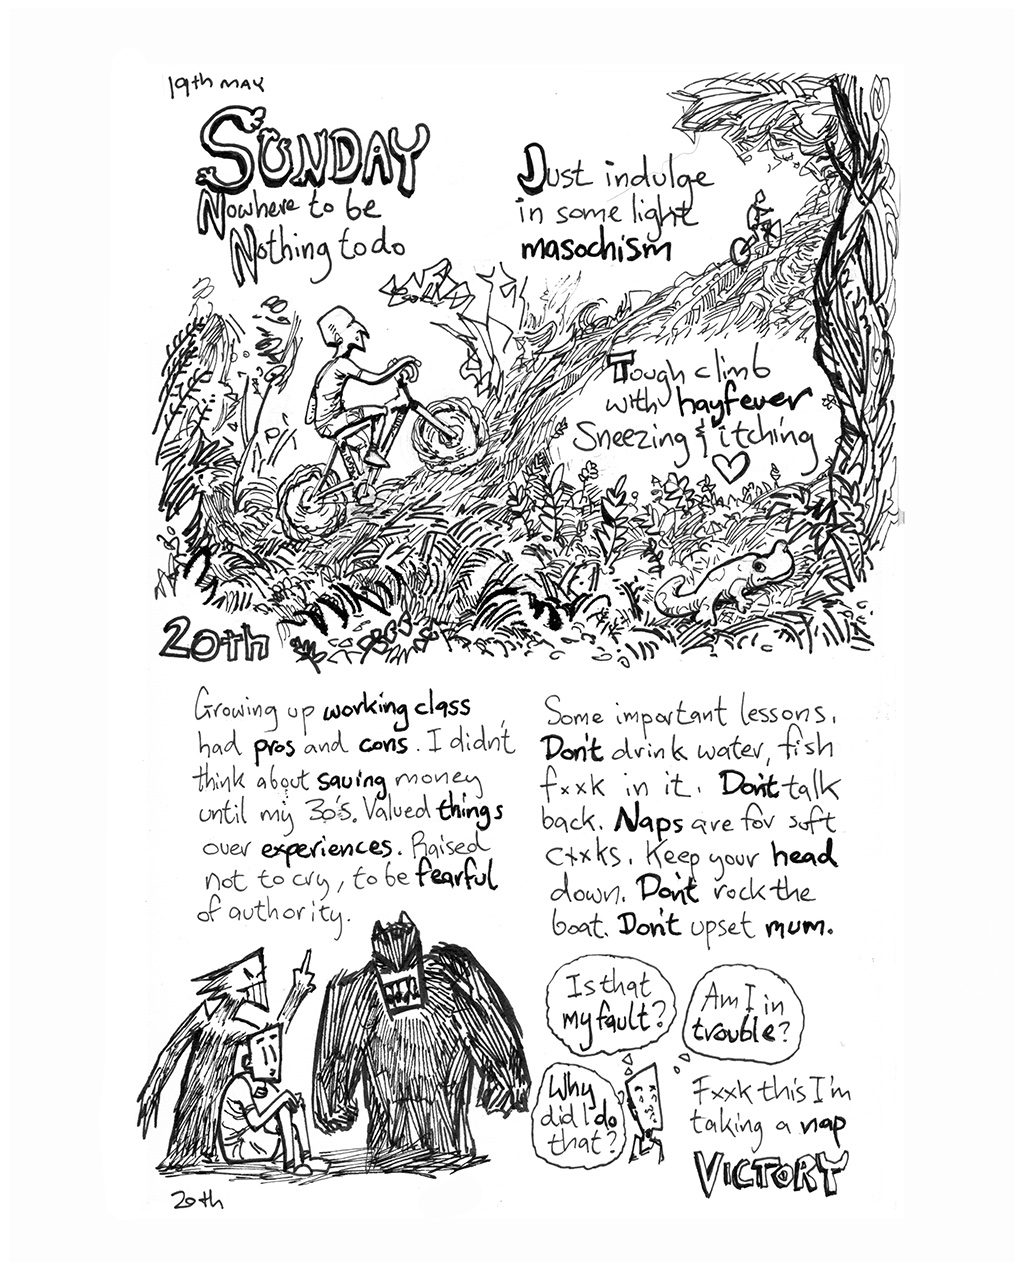 19th MAY
SUNDAY
Nowhere to be
Nothing to do
Just indulge
in some light
masochism
Tough climb
with hayfever
Sneezing & itching
20th
Growing up working class
had pros and cons. I didn't
think about saving money
until my 30's. Valued things
over experiences. Raised
not to cry, to be fearful
of authority.
Some important lessons.
Don't drink water, fish
fxxk in it. Don't talk
back. Naps are for soft
cxxks. Keep your head
down. Don't rock the
boat. Don't upset mum.
Is that
my fault?
Am I in
trouble?
Why
did I do
that?
Fxxk this I'm
taking a nap
VICTORY
20th